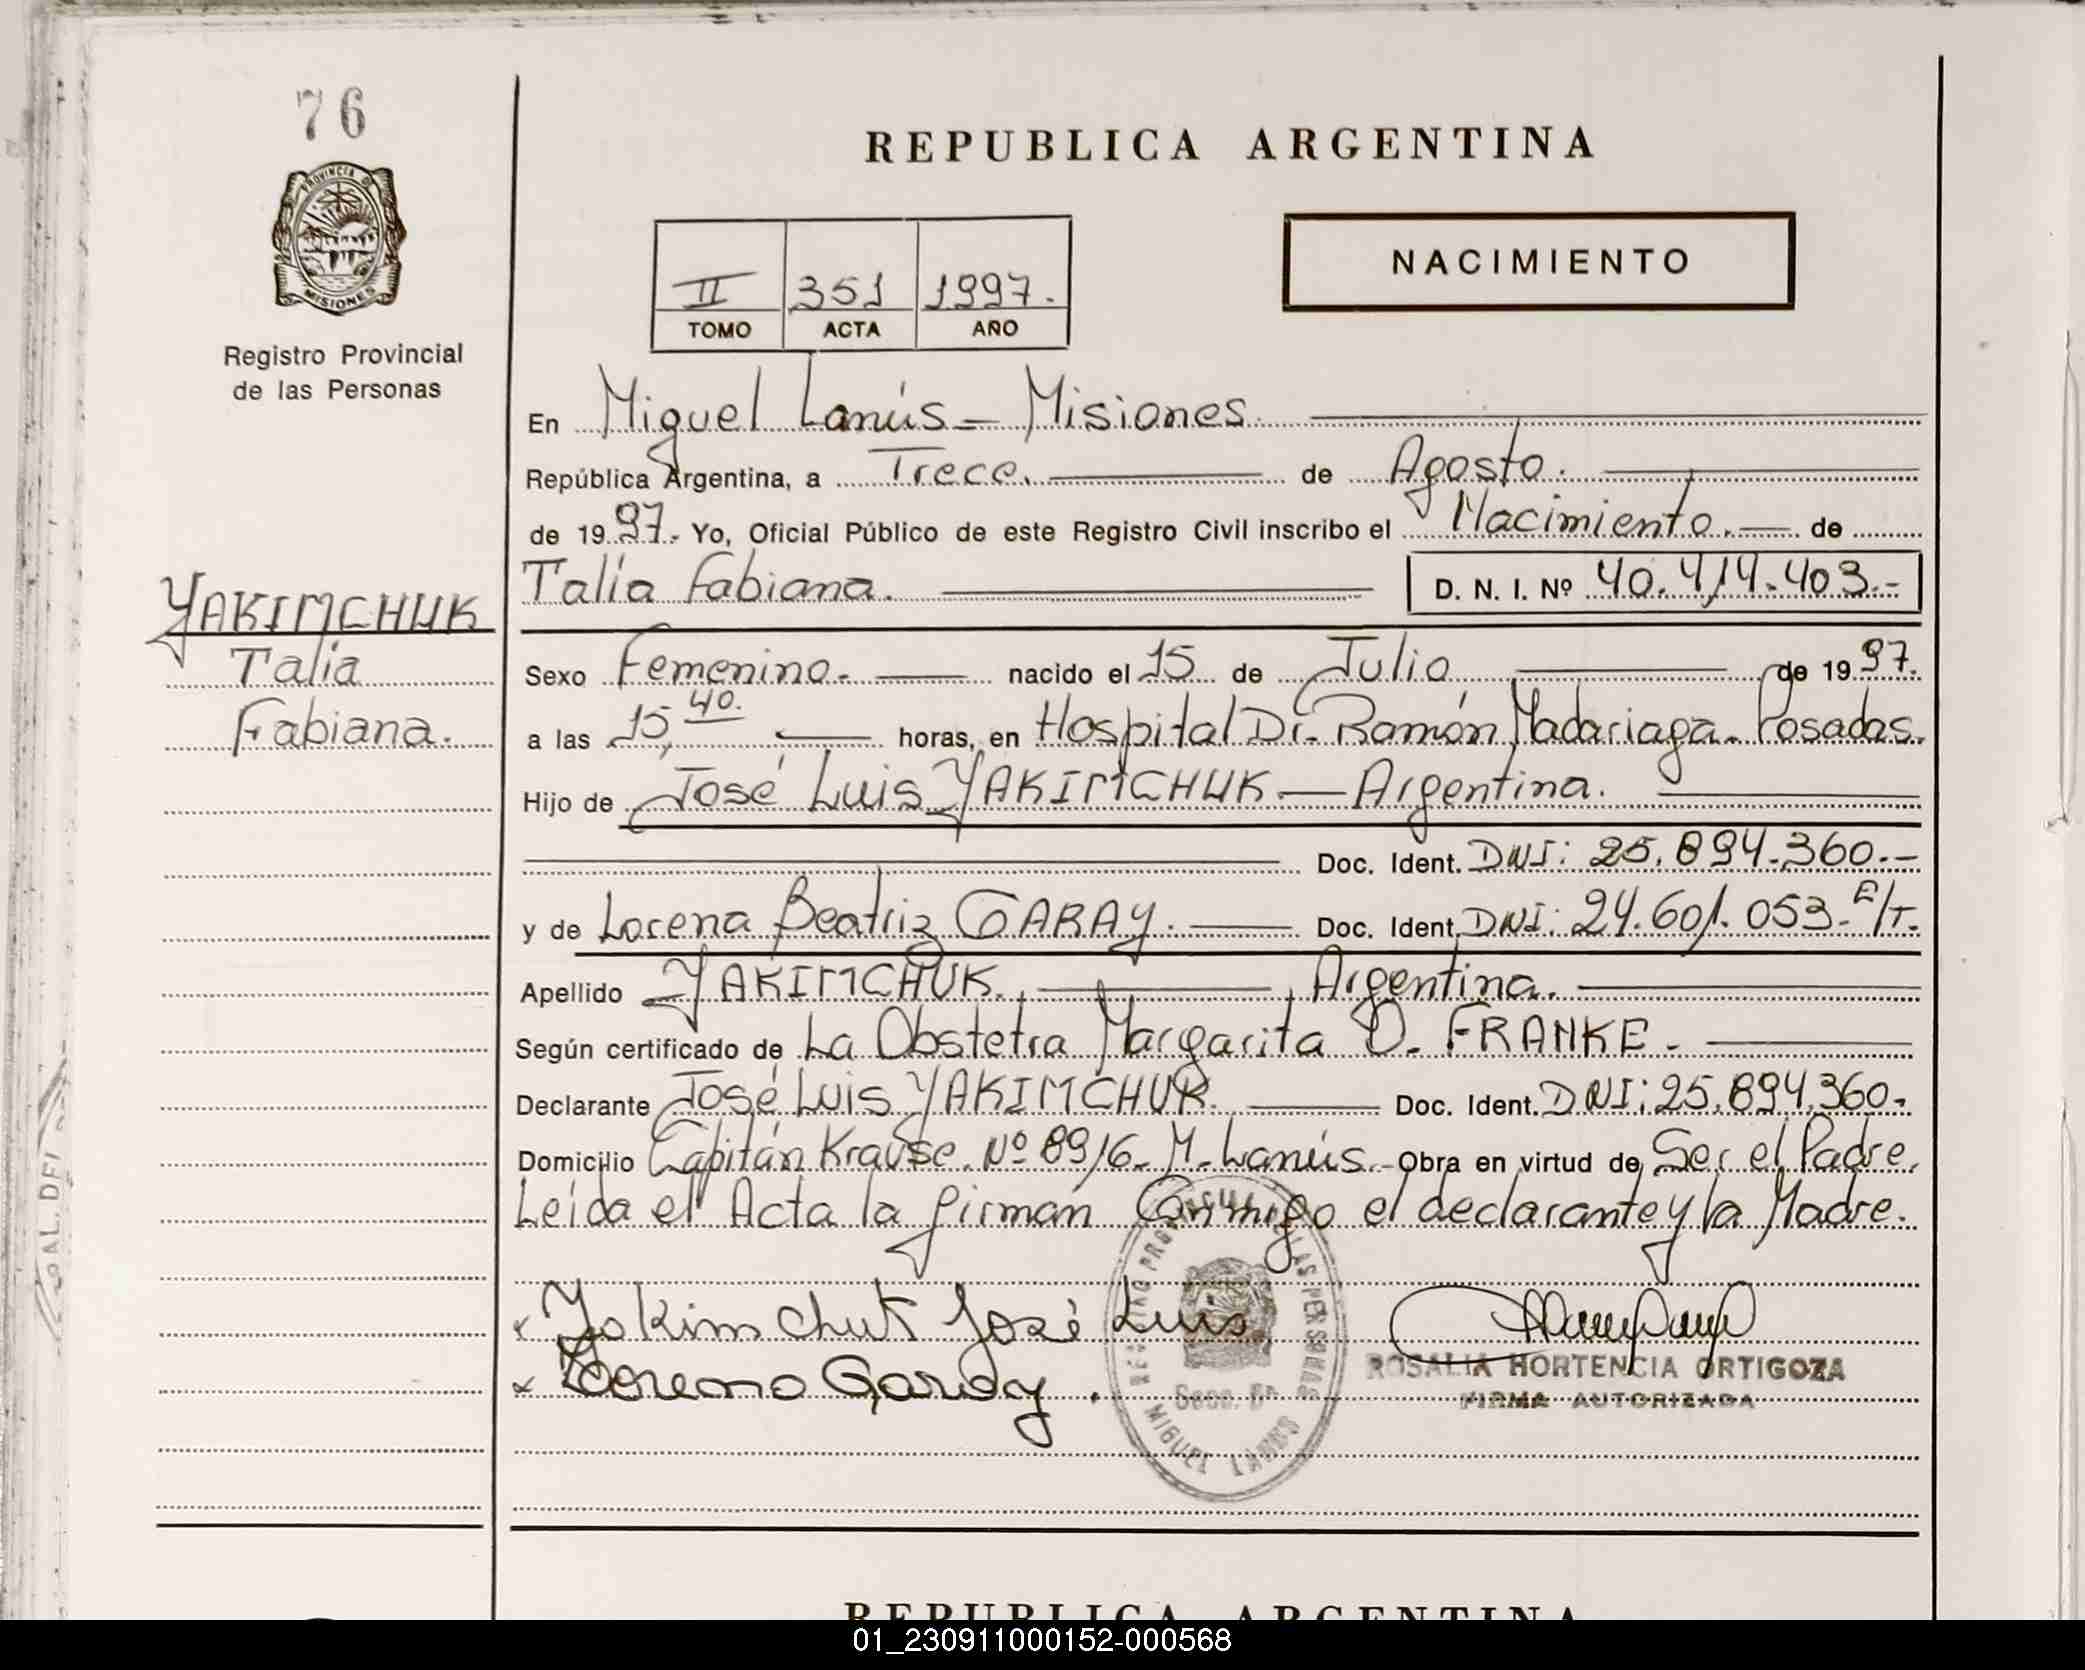 76
PROVINCIA DE
MISIONES
Registro Provincial
de las Personas
REPUBLICA ARGENTINA
II 351 1997.
TOMO ACTA AÑO
NACIMIENTO
En Miguel Lanús - Misiones.
República Argentina, a Trece. de Agosto.
de 1997.- Yo, Oficial Público de este Registro Civil inscribo el Nacimiento. de
Talía Fabiana. D. N. I. Nº 40.414.403.-
YAKIMCHUK
Talía
Fabiana.
Sexo Femenino.- nacido el 15 de Julio de 1997.
a las 15,40. horas, en Hospital Dr. Ramón Madariaga.- Posadas.
Hijo de José Luis YAKIMCHUK - Argentina.
Doc. Ident. DNI: 25.894.360.-
y de Lorena Beatriz GARAY. Doc. Ident. DNI: 24.601.053.- E/T.
Apellido YAKIMCHUK. Argentina.
Según certificado de La Obstetra Margarita D. FRANKE.-
Declarante José Luis YAKIMCHUK. Doc. Ident. DNI: 25.894.360.-
Domicilio Capitán Krause. Nº 8916.- M. Lanús.- Obra en virtud de Ser el Padre.
Leída el Acta la firman Conmigo el declarante y la Madre.
x Yakimchuk José Luis
x Lorena Garay.
REGISTRO PROVINCIAL DE LAS PERSONAS
MIGUEL LANUS
ROSALIA HORTENCIA ORTIGOZA
FIRMA AUTORIZADA
REPUBLICA ARGENTINA
01_230911000152-000568